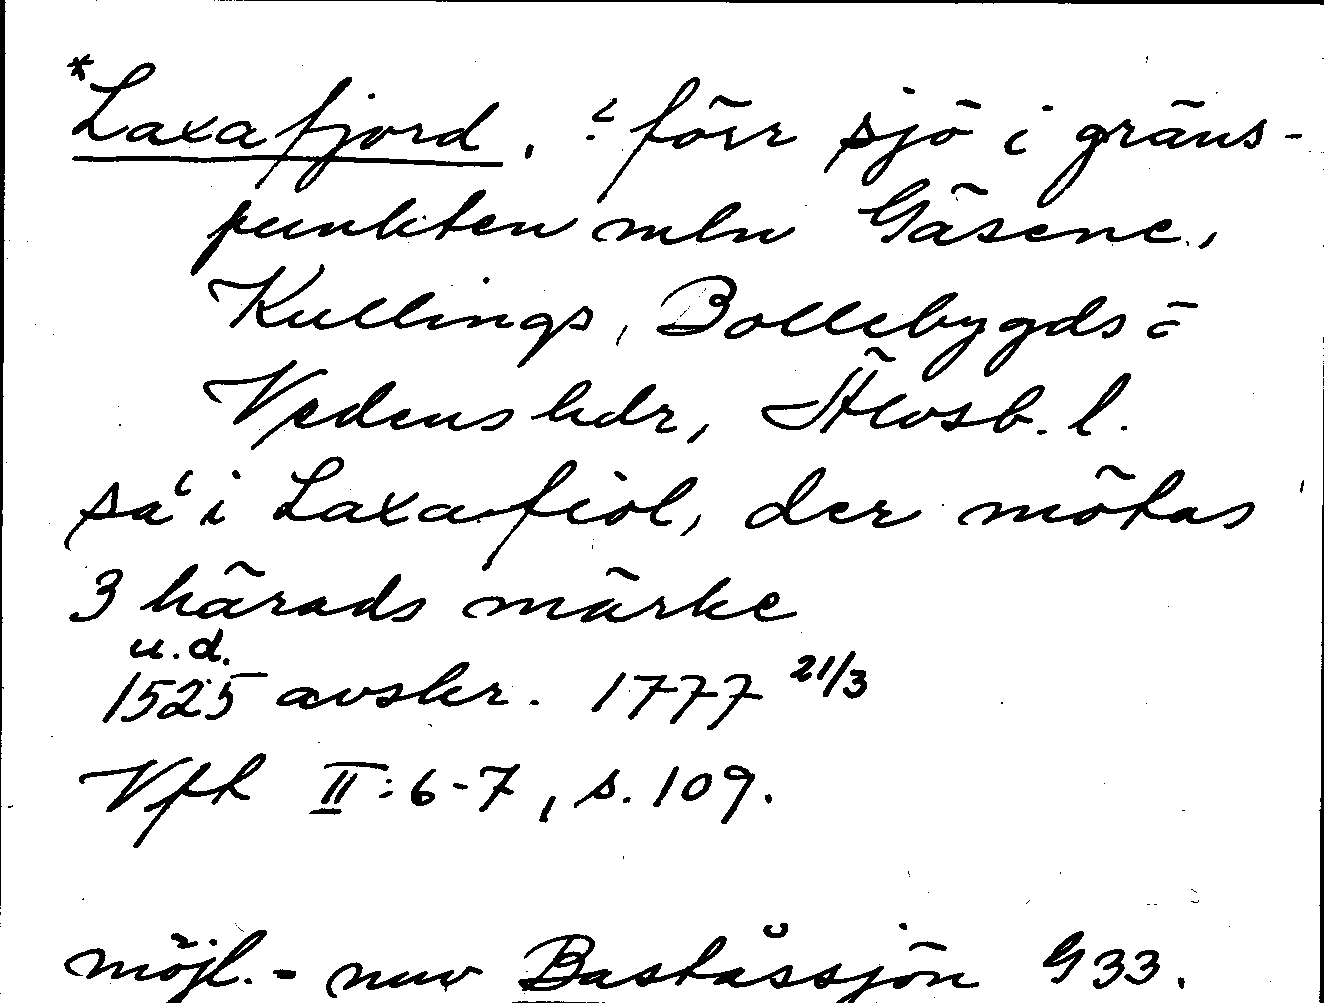 *Laxafjord, ? förr sjö i gräns-
punkten mln Gäsene,
Kullings, Bollebygds o
Vedens hdr, Älvsb. l.
så i Laxafiol, der mötas
3 härads märke
u.d.
1525 avskr. 1777 21/3
Vfh II:6-7, s. 109.
möjl. = nuv Baståssjön G 33.